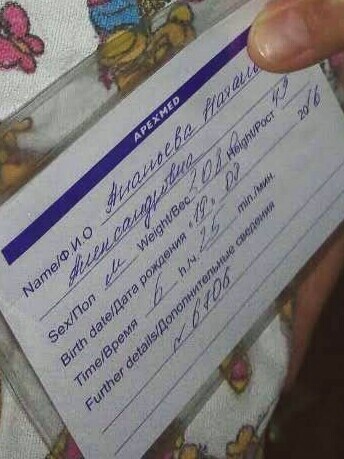 APEXMED
Name/Ф.И.О Ананьева Наталь
Александровна
Sex/Пол м Weight/Вес 2080 Height/Рост 43
Birth date/Дата рождения "19" 08 2016
Time/Время 6 h/ч. 25 min./мин.
Further details/Дополнительные сведения
6706